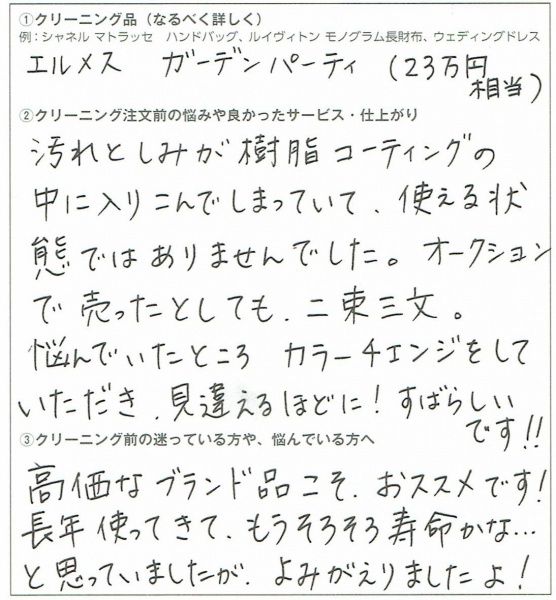 ①クリーニング品（なるべく詳しく）
例：シャネル マトラッセ　ハンドバッグ、ルイヴィトン モノグラム長財布、ウェディングドレス
エルメス　ガーデンパーティ（23万円
相当）
②クリーニング注文前の悩みや良かったサービス・仕上がり
汚れとしみが樹脂コーティングの
中に入りこんでしまっていて、使える状
態ではありませんでした。オークション
で売ったとしても、二束三文。
悩んでいたところ　カラーチェンジをして
いただき、見違えるほどに！すばらしい
です!!
③クリーニング前の迷っている方や、悩んでいる方へ
高価なブランド品こそ、おススメです！
長年使ってきて、もうそろそろ寿命かな…
と思っていましたが、よみがえりましたよ！